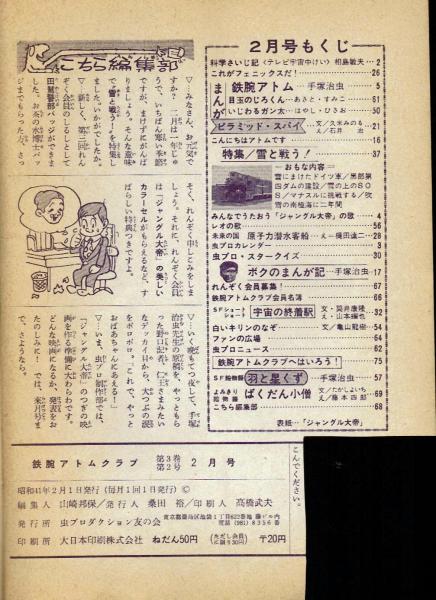 2月号もくじ
科学さいじ記〈テレビ宇宙中けい〉相島敏夫… 2
これがフェニックスだ！ 26
まんが
鉄腕アトム…手塚治虫… 5
目玉のじろくん…あさと・すみこ… 61
いじわるガン太…はやし・ひさお… 50
ピラミッド・スパイ 文/久米みのる え/石井 治 21
こんにちはアトムです 16
特集／雪と戦う！ 37
おもな内容
雪にまけたドイツ軍／黒部第四ダムの建設／雪の上のSOS／マナスルに挑戦する／吹雪の南極海に二年間
みんなでうたおう「ジャングル大帝」の歌… 4
レオの歌 56
未来の国 原子力潜水客船 え＝梶田達二… 28
虫プロカレンダー 3
虫プロ・スタークイズ 30
ボクのまんが記…手塚治虫…17
れんぞく会員募集！ 67
鉄腕アトムクラブ会員名簿 66
SFショートショート 宇宙の終着駅 文・筒井康隆 え・山本耀也 32
白いキリンのなぞ 文/亀山龍樹… 54
ファンの広場 64
虫プロニュース 62
鉄腕アトムクラブへはいろう！ 75
SF絵物語 羽と星くず…手塚治虫… 57
よみきり絵物語 ばくだん小僧 文/たかしよいち え/藤本四郎 69
こちら編集部 68
表紙…「ジャングル大帝」
こちら編集部
▽…みなさん、お元気ですか？ 二月は一年じゅうで、いちばん寒い季節ですが、まけずにがんばりましょう。そんな意味で『雪と戦う！』を特集しました。いかがでしたか。
▽…新しく、第二回れんぞく会員のしるしとして田鷲警部バッジができました。お茶の水博士バッジまでもらった方、さっそく、れんぞく申しこみをしましょう。それに、れんぞく会員は『ジャングル大帝』の美しいカラーセルがもらえるなど、すばらしい特典つきですよ。
▽…いく晩もてつ夜して、手塚治虫先生の原稿を、やっともらった野口記者。仁王さまみたいなデッカイ目から、大つぶの涙をポロポロ。「これで、やっとおばあちゃんにあえる！」
▽…いま、虫プロ制作部では、『ジャングル大帝』のつぎの映画を作る準備に大わらわです。どんな映画になるか、発表をおたのしみに！ では、来月号まで、さようなら。
こんでください。
鉄腕アトムクラブ 第3巻 第2号 2月号
昭和41年2月1日発行（毎月1回1日発行）©
編集人 山崎邦保／発行人 桑田 裕／印刷人 高橋武夫
発行所 虫プロダクション友の会 東京都練馬区池袋1丁目622番地 藤ビル内 電話（981）8356番
印刷所 大日本印刷株式会社 ねだん50円 〒20円